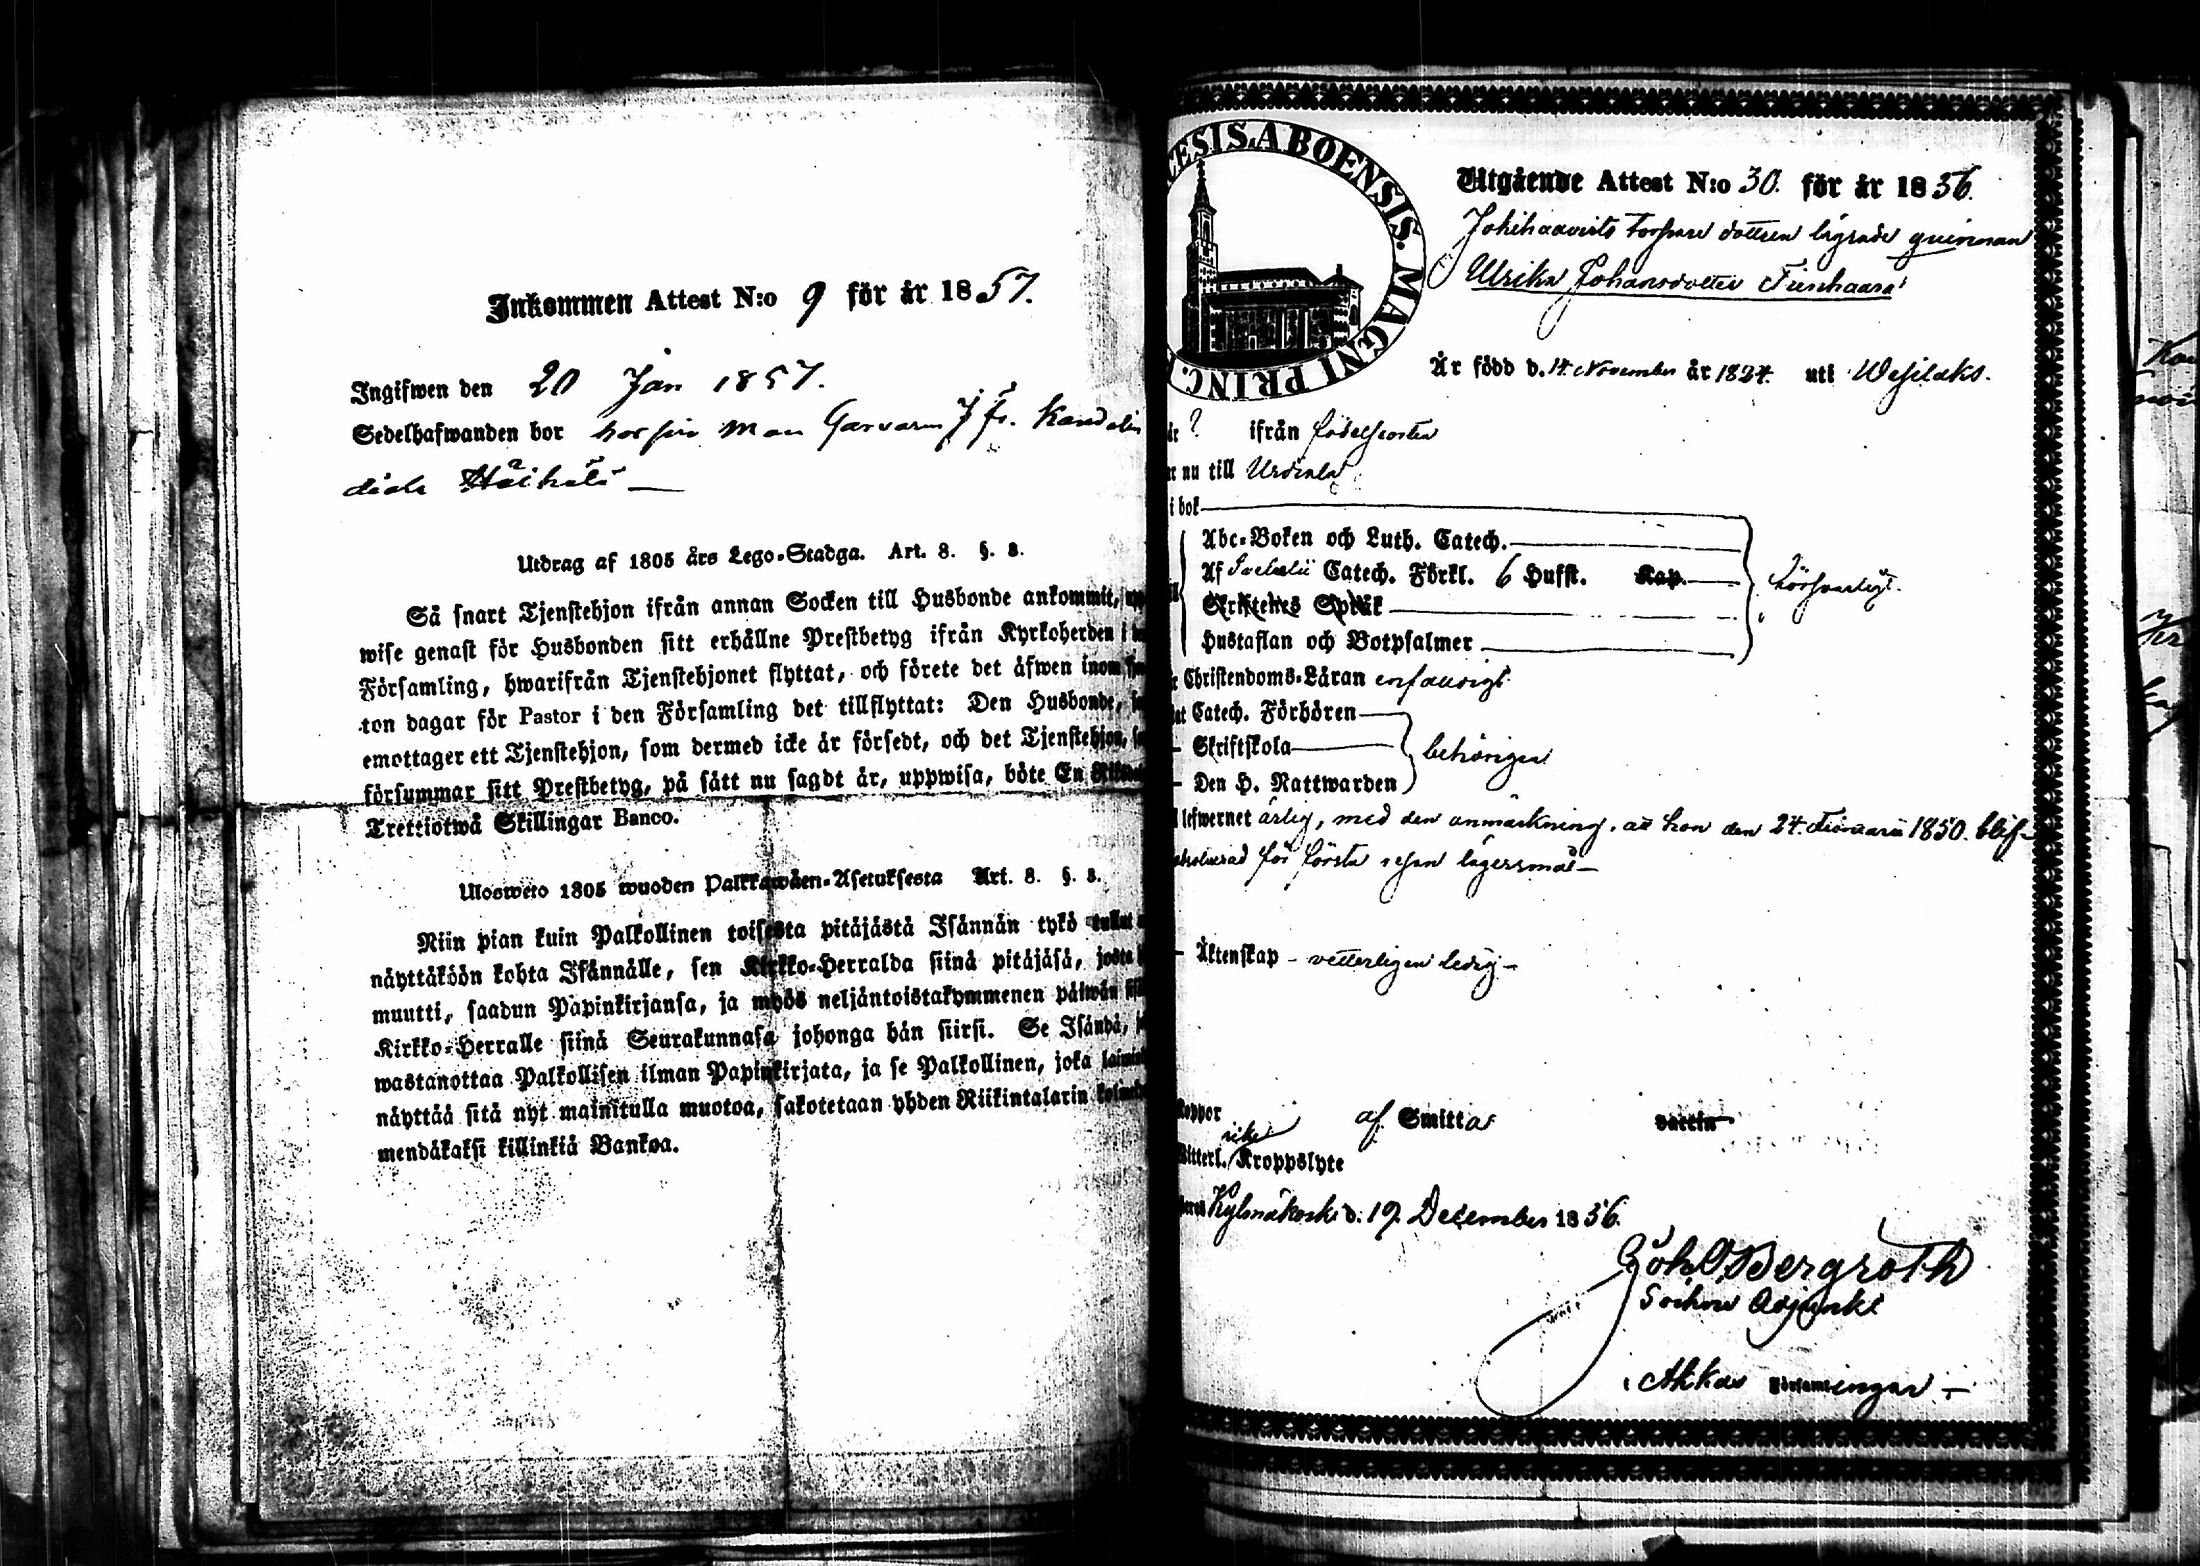 Inkommen Attest N:o 9 för år 1857.
Ingifwen den 20 Jan 1857.
Sedelhafwanden bor hos sin man Garvaren
Utdrag af 1805 års Lego-Stadga. Art. 8. §. 8.
Så snart Tjenstehjon ifrån annan Socken till Husbonde ankommit,
wise genast för Husbonden sitt erhållne Prestbetyg ifrån Kyrkoherden i
Församling, hwarifrån Tjenstehjonet flyttat, och förete det äfwen inom
ton dagar för Pastor i den Församling det tillflyttat: Den Husbonde,
emottager ett Tjenstehjon, som dermed icke är försedt, och det Tjenstehjon,
försummar sitt Prestbetyg, på sätt nu sagdt är, uppwisa, böte En
Trettiotwå Skillingar Banco.
Ulosweto 1805 wuoden Palkkawäen-Asetuksesta Art. 8. §. 8.
Niin pian kuin Palkollinen toisesta pitäjästä Isännän tykö tullut
näyttäköön kohta Isännälle, sen Kirkko-Herralda siinä pitäjäsä, josta
muutti, saadun Papinkirjansa, ja myös neljäntoistakymmenen päiwän
Kirkko-Herralle siinä Seurakunnasa johonga hän siirsi. Se Isändä,
wastanottaa Palkollisen ilman Papinkirjata, ja se Palkollinen, joka
näyttää sitä nyt mainitulla muotoa, sakotetaan yhden Riikintalarin
mendäkaksi killinkiä Bankoa.
CESIS. ABOENSIS. MAGNI PRINC.
Utgående Attest N:o 30. för år 1856.
torpare dottren lägrade qvinnan
Ulrika Johansdotter
Är född d. 14. November år 1824. uti Wesilaks.
? ifrån födelseorten
nu till Urdiala
i bok
Abc-Boken och Luth. Catech.
Af Catech. Förkl. 6 Hufst. Kap. försvarligt.
Skriftenes Språk
Hustaflan och Botpsalmer
Christendoms-Läran enfaldigt
Catech. Förhören
Skriftskola behörigen
Den H. Nattwarden
lefwernet ärlig, med den anmärkning, att hon den 24. Februarii 1850. blif-
för första resan lägersmål
Äktenskap - vetterligen ledig -
Koppor af Smitta
Witterl. Kroppslyte
Kylmäkoski d. 19. December 1856.
Joh. O. Bergroth
Sockne Adjunkt
i Akkas Församlingar